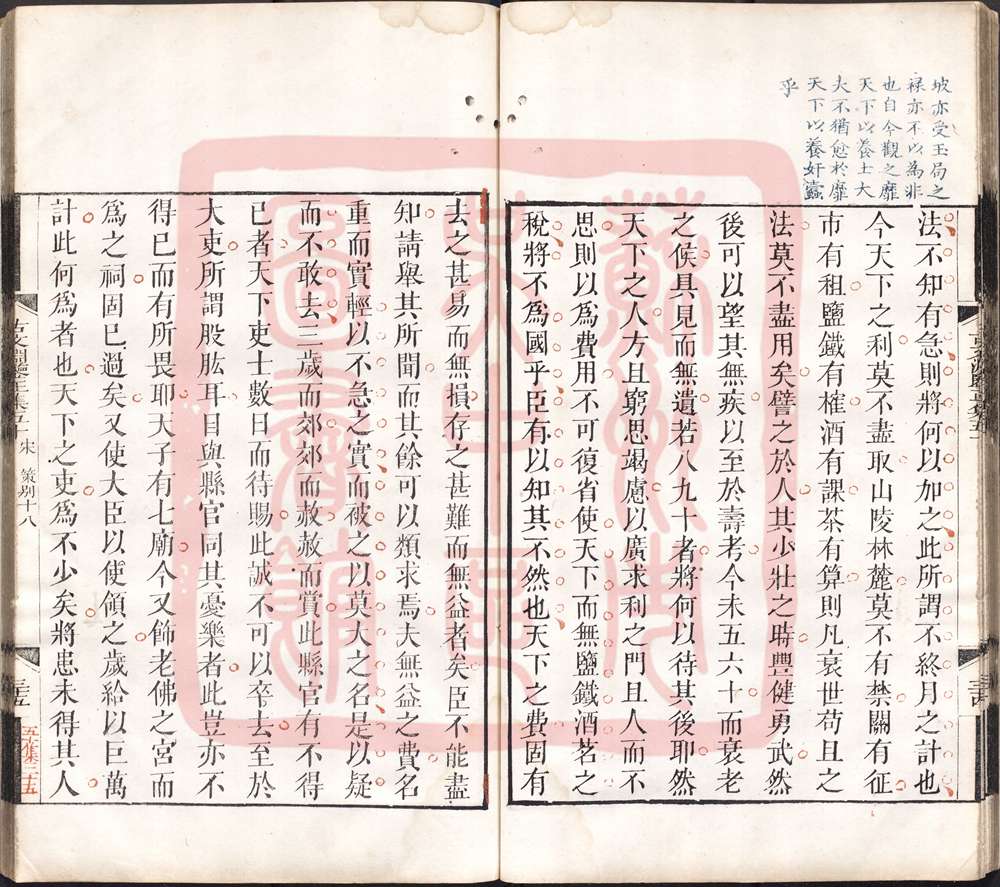 坡亦受玉局之
祿亦不以為非
也自今觀之靡
天下以養士大
夫不猶愈於靡
天下以養奸蠹
乎
法不知有急則將何以加之此所謂不終月之計也
今天下之利莫不盡取山陵林麓莫不有禁關有征
市有租鹽鐵有榷酒有課茶有算則凡衰世苟且之
法莫不盡用矣譬之於人其少壯之時豐健勇武然
後可以望其無疾以至於壽考今未五六十而衰老
之侯具見而無遺若八九十者將何以待其後耶然
天下之人方且窮思竭慮以廣求利之門且人而不
思則以為費用不可復省使天下而無鹽鐵酒茗之
稅將不為國乎臣有以知其不然也天下之費固有
去之甚易而無損存之甚難而無益者矣臣不能盡
知請舉其所聞而其餘可以類求焉夫無益之費名
重而實輕以不急之實而被之以莫大之名是以疑
而不敢去三歲而郊郊而赦赦而賞此縣官有不得
已者天下吏士數日而待賜此誠不可以卒去至於
大吏所謂股肱耳目與縣官同其憂樂者此豈亦不
得已而有所畏耶天子有七廟今又飾老佛之宮而
爲之祠固已過矣又使大臣以使領之歲給以巨萬
計此何爲者也天下之吏爲不少矣將患未得其人
古文淵鑒正集五一 宋 策别十八
三五
五集三五
蘇州市
吳中區
圖書館